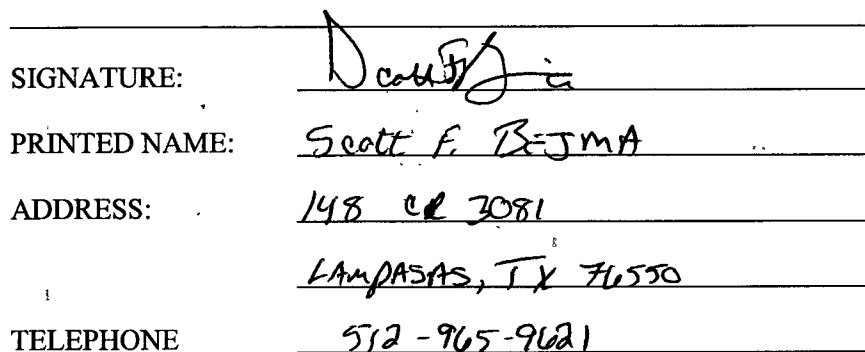 SIGNATURE: Scott F
PRINTED NAME: Scott F. BEJMA
ADDRESS: 148 CR 3081
LAMPASAS, TX 76550
TELEPHONE 512-965-9621